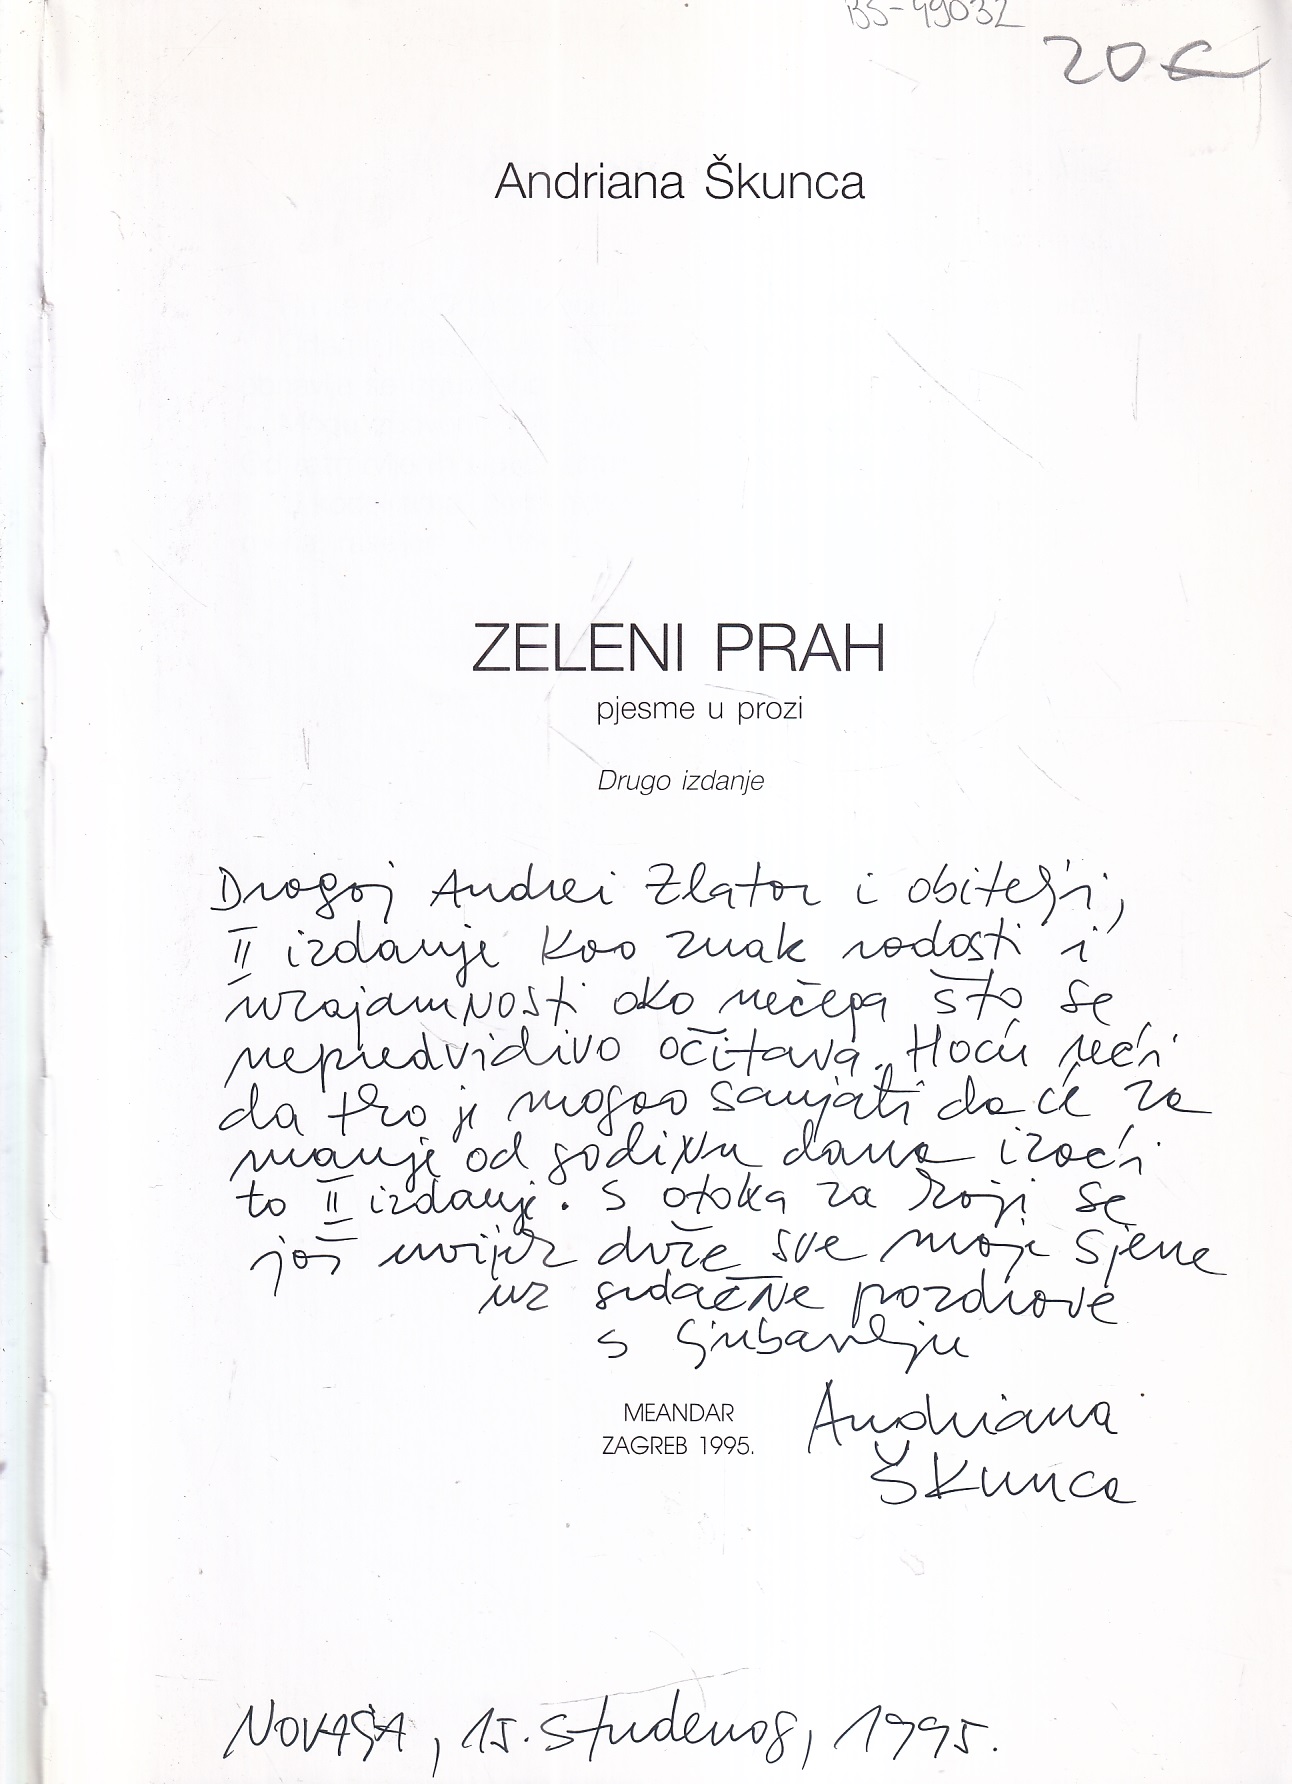 BS-49032
20€
Andriana Škunca
ZELENI PRAH
pjesme u prozi
Drugo izdanje
Dragoj Andrei Zlatar i obitelji,
II izdanje kao znak radosti i
uzajamnosti oko nečega što se
nepredvidivo očitava. Hoću reći
da tko je mogao sanjati da će za
manje od godinu dana izaći
to II izdanje. S otoka za koji se
još uvijek drže sve moje sjene
uz srdačne pozdrave
s ljubavlju
MEANDAR
ZAGREB 1995.
Andriana
Škunca
NOVALJA, 15. studenog, 1995.